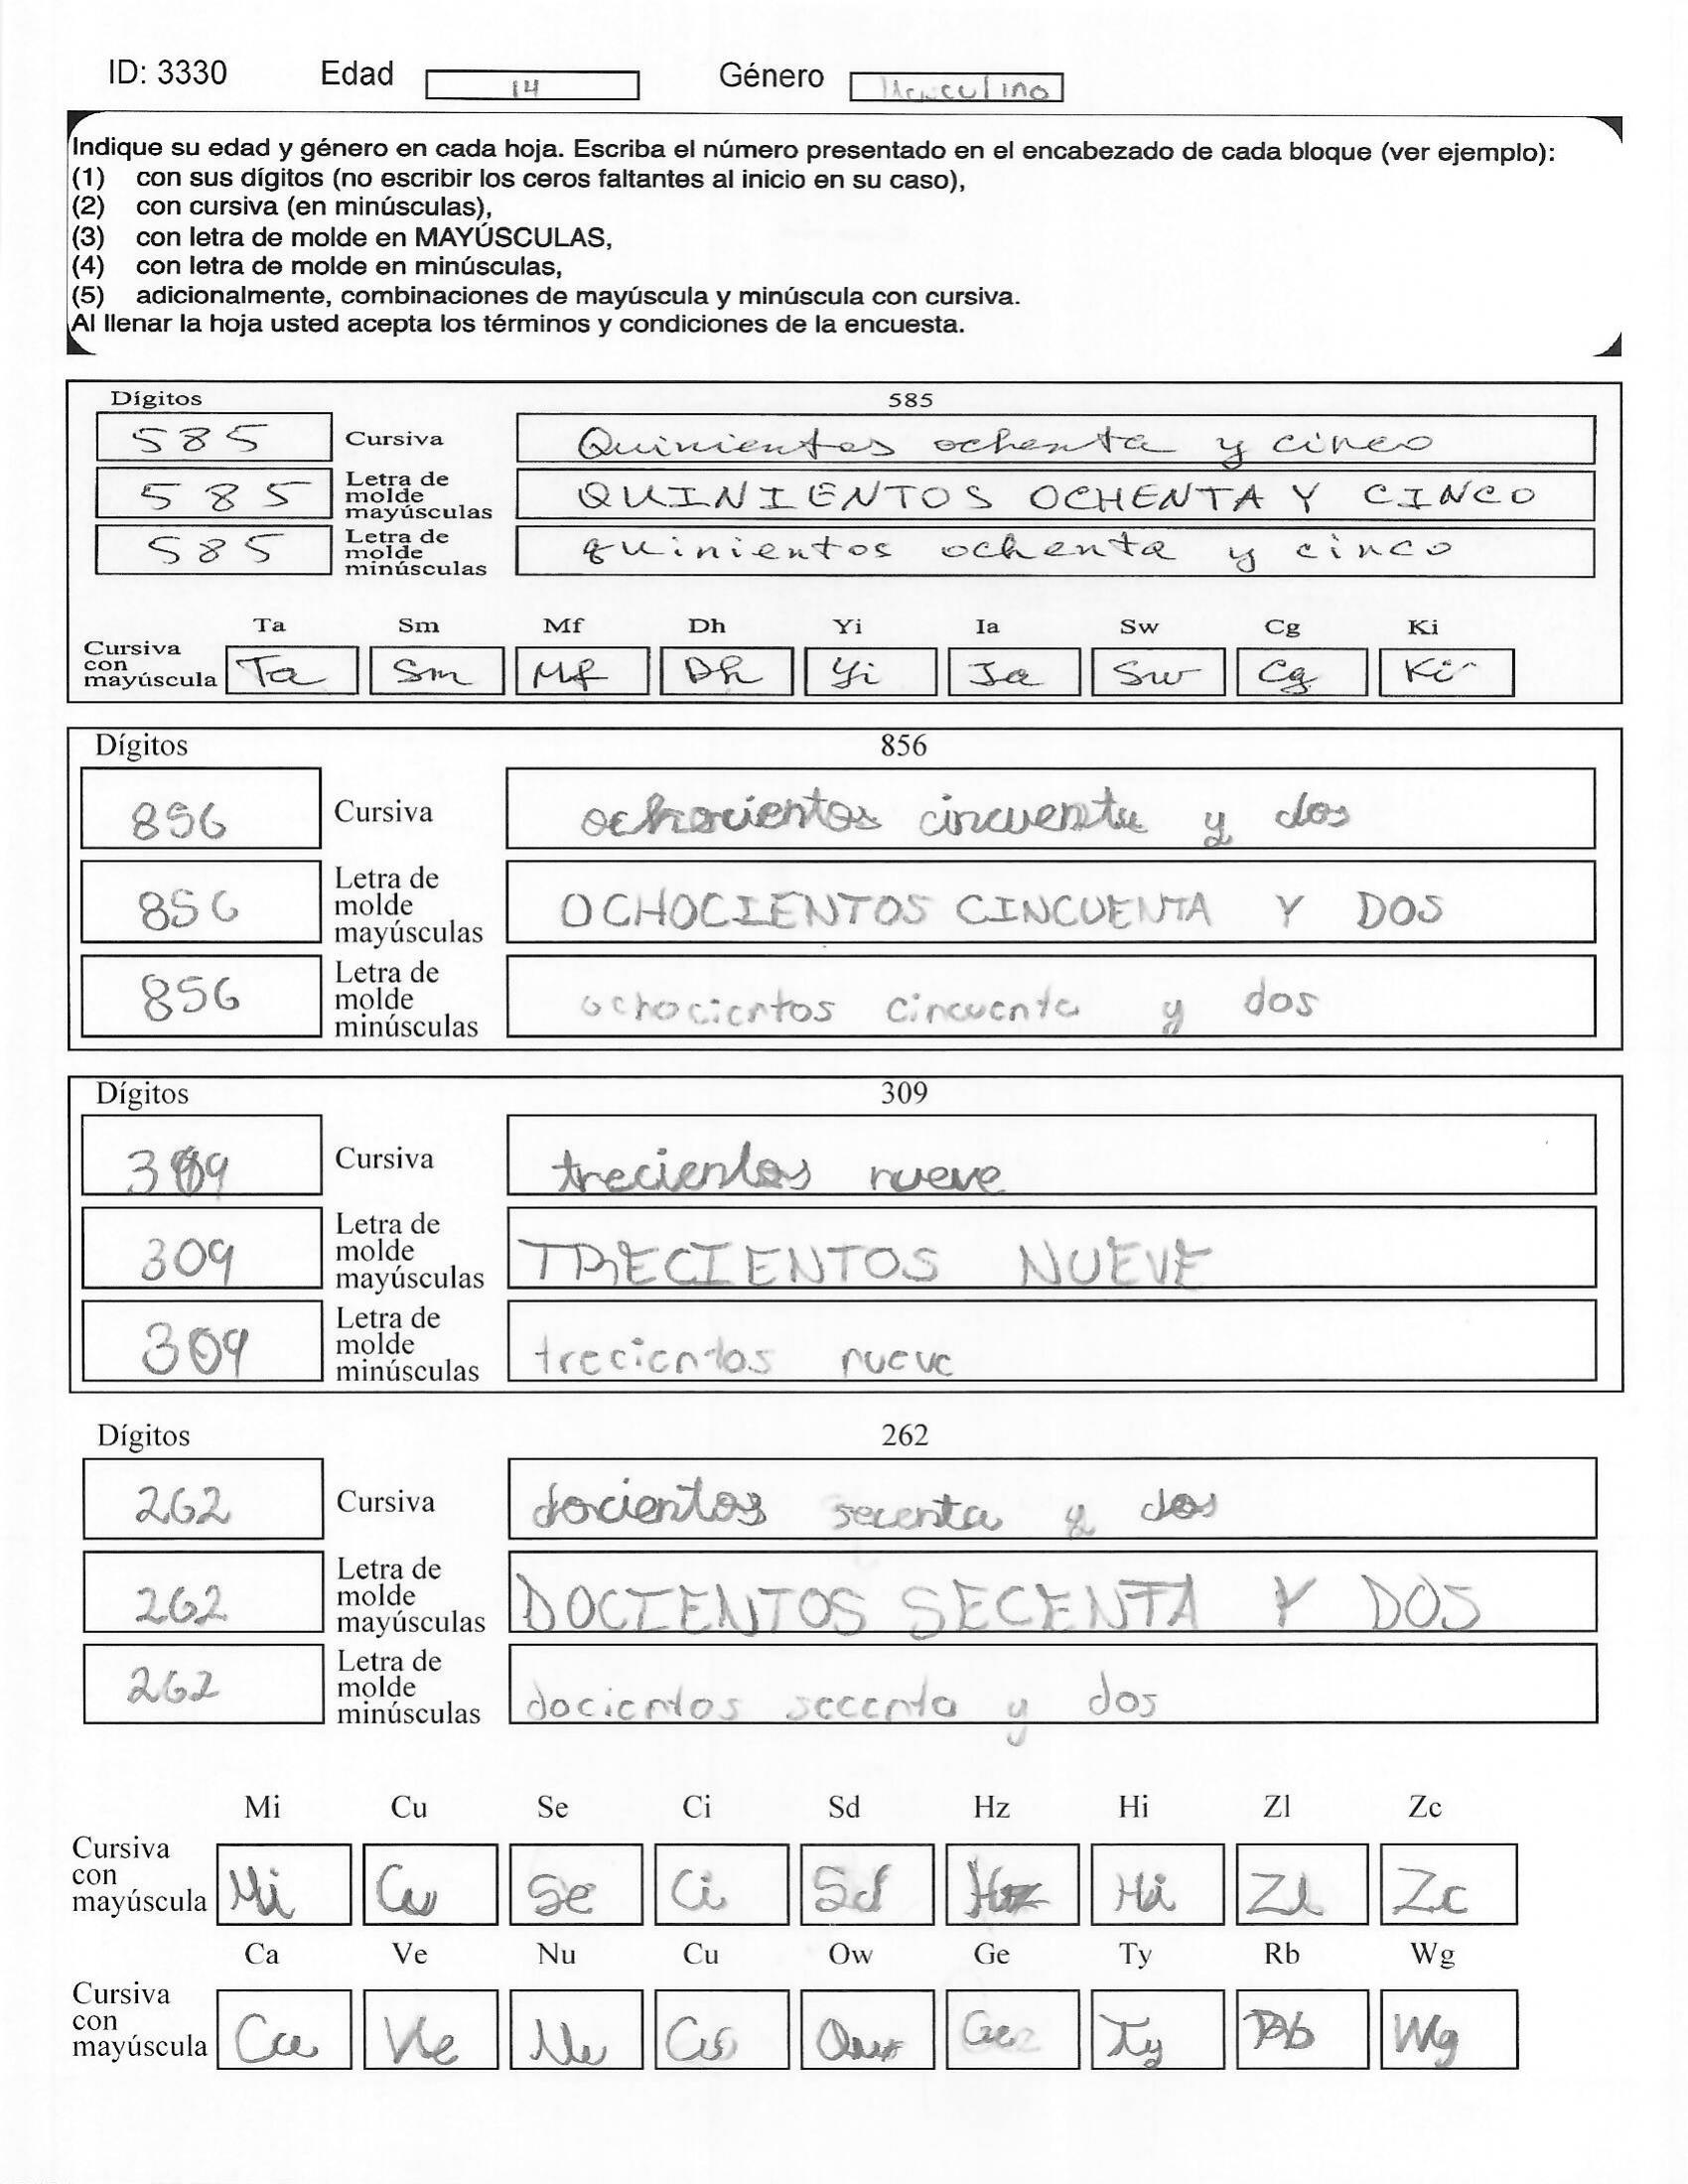 ID: 3330 Edad 14 Género Masculino
Indique su edad y género en cada hoja. Escriba el número presentado en el encabezado de cada bloque (ver ejemplo):
(1) con sus dígitos (no escribir los ceros faltantes al inicio en su caso),
(2) con cursiva (en minúsculas),
(3) con letra de molde en MAYÚSCULAS,
(4) con letra de molde en minúsculas,
(5) adicionalmente, combinaciones de mayúscula y minúscula con cursiva.
Al llenar la hoja usted acepta los términos y condiciones de la encuesta.
Dígitos 585
585 Cursiva Quinientos ochenta y cinco
585 Letra de molde mayúsculas QUINIENTOS OCHENTA Y CINCO
585 Letra de molde minúsculas quinientos ochenta y cinco
Ta Sm Mf Dh Yi Ia Sw Cg Ki
Cursiva con mayúscula Ta Sm Mf Dh Yi Ia Sw Cg Ki
Dígitos 856
856 Cursiva ochocientos cincuenta y dos
856 Letra de molde mayúsculas OCHOCIENTOS CINCUENTA Y DOS
856 Letra de molde minúsculas ochocientos cincuenta y dos
Dígitos 309
309 Cursiva trecientos nueve
309 Letra de molde mayúsculas TRECIENTOS NUEVE
309 Letra de molde minúsculas trecientos nueve
Dígitos 262
262 Cursiva docientos secenta y dos
262 Letra de molde mayúsculas DOCIENTOS SECENTA Y DOS
262 Letra de molde minúsculas docientos secenta y dos
Mi Cu Se Ci Sd Hz Hi Zl Zc
Cursiva con mayúscula Mi Cu Se Ci Sd Hz Hi Zl Zc
Ca Ve Nu Cu Ow Ge Ty Rb Wg
Cursiva con mayúscula Ca Ve Nu Cu Ow Ge Ty Rb Wg